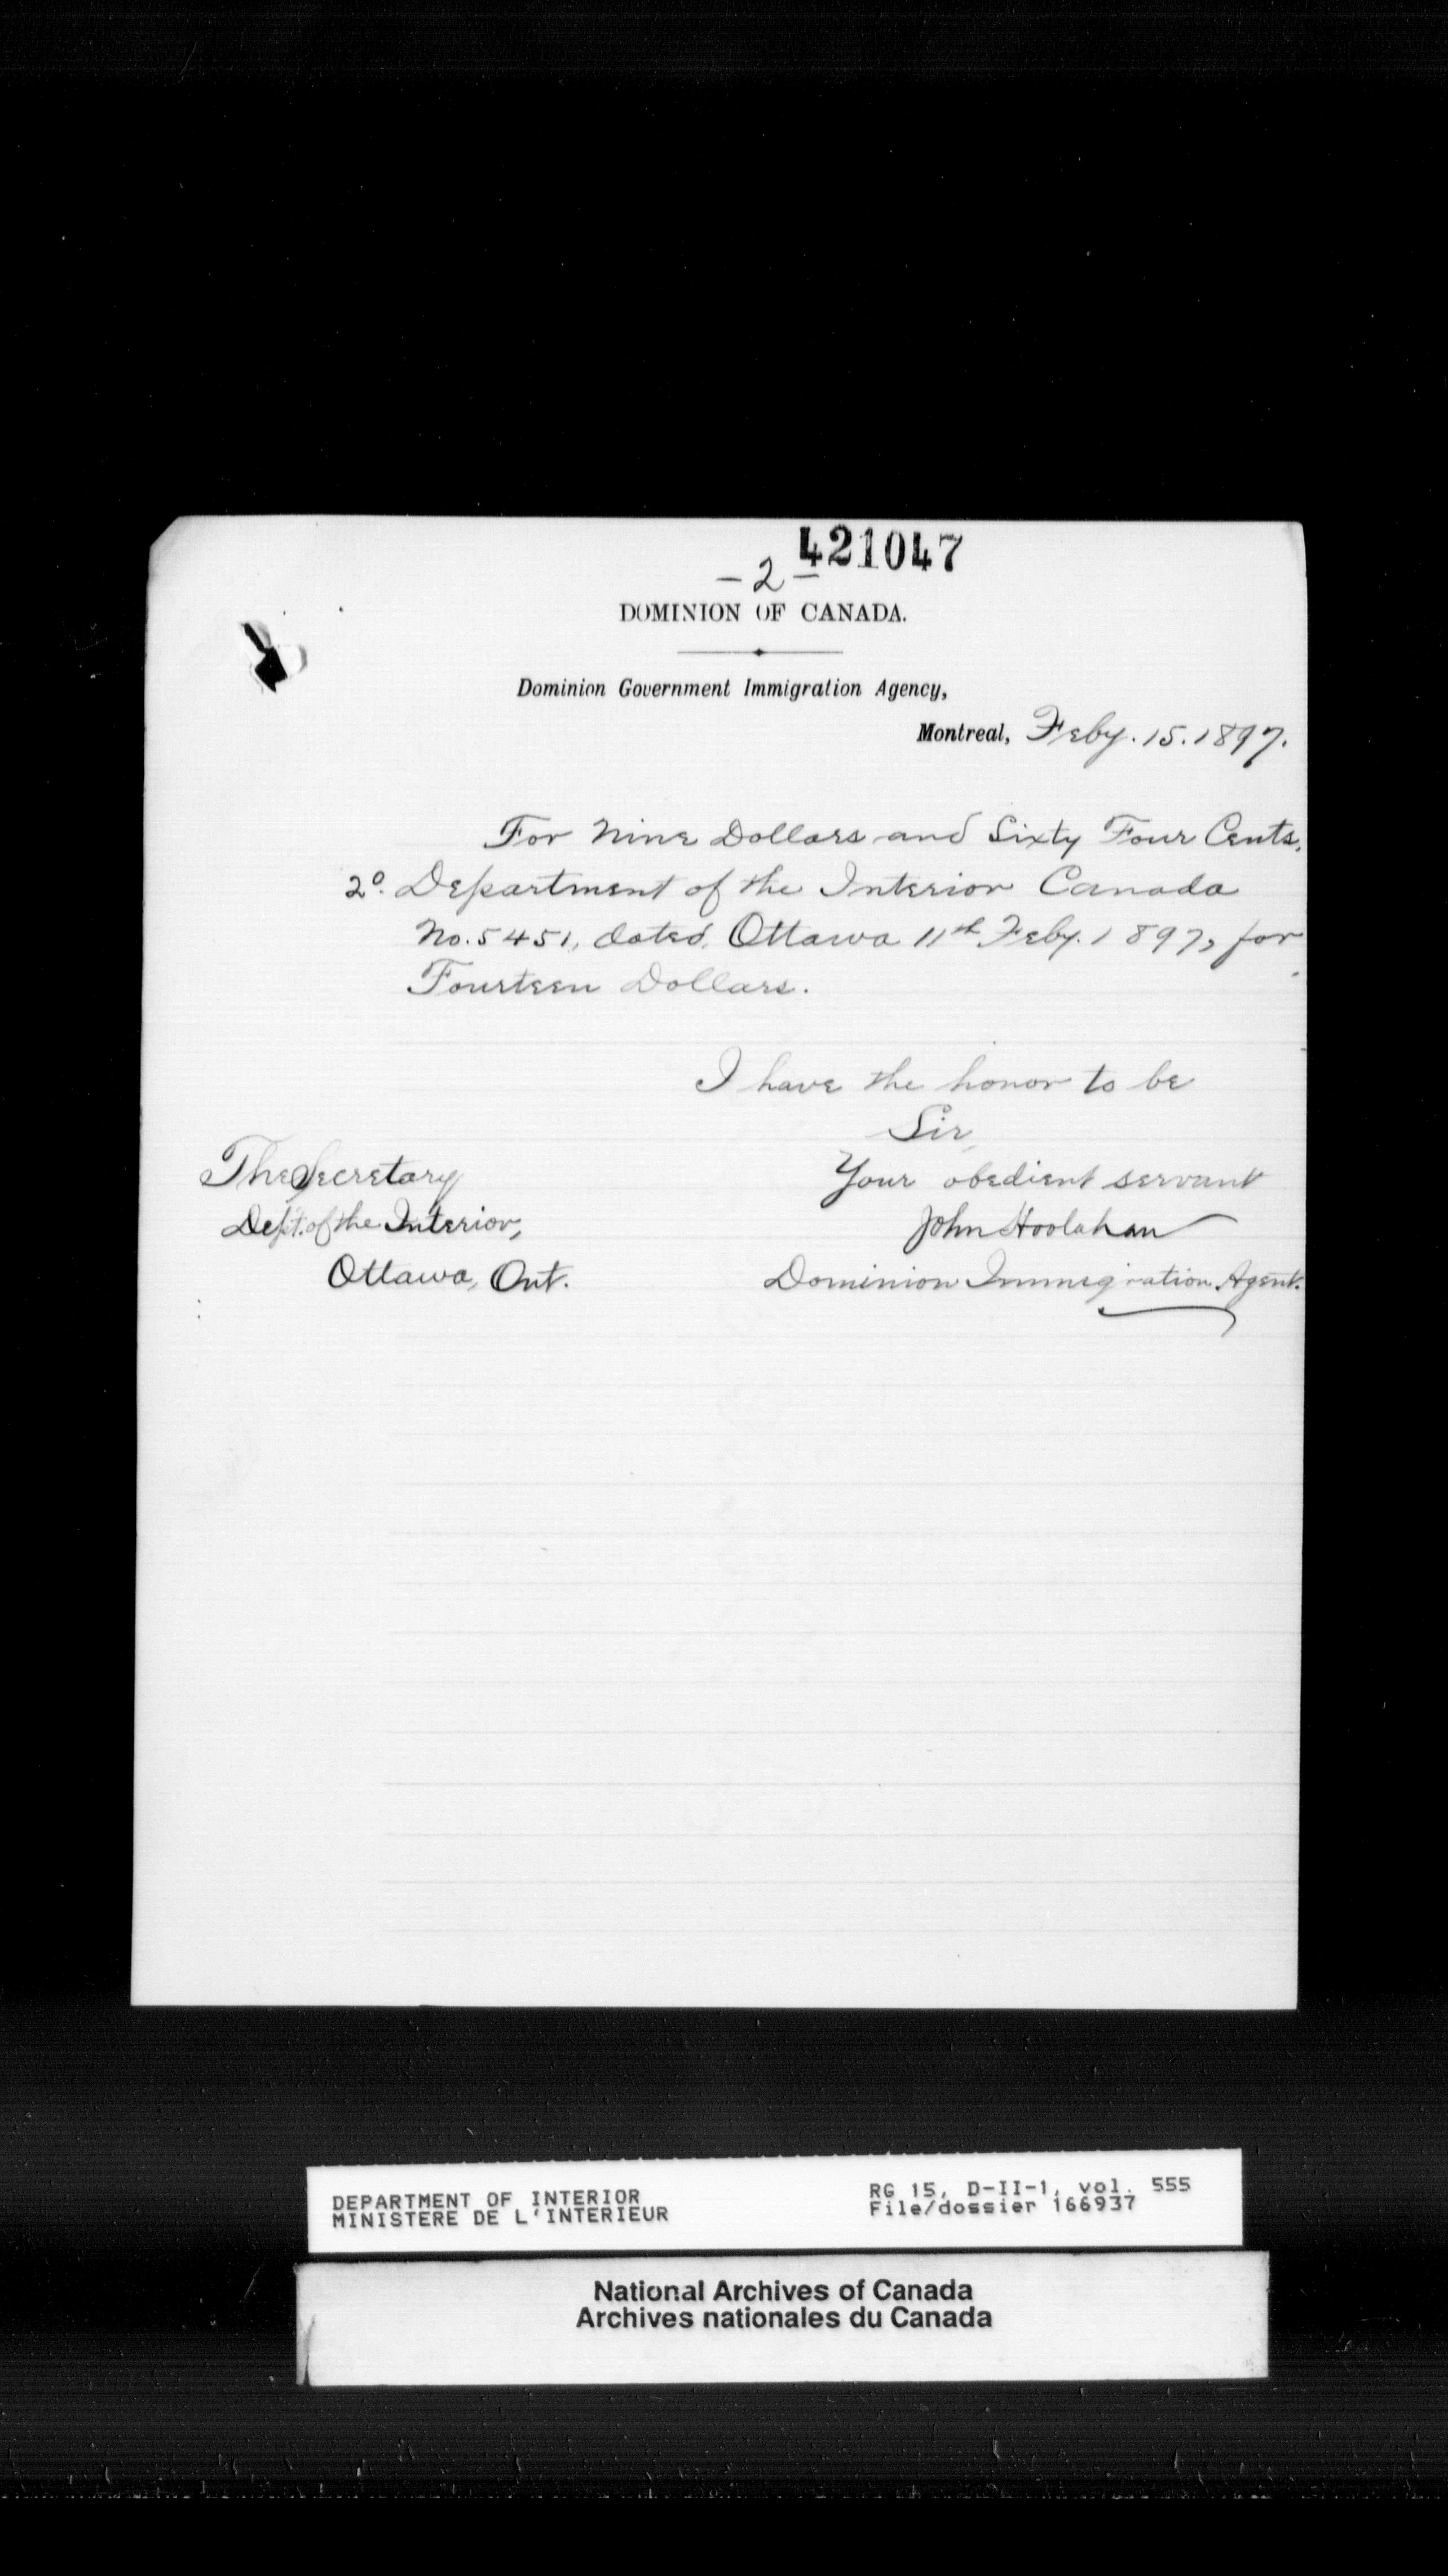 421047
- 2 -
DOMINION OF CANADA.
Dominion Government Immigration Agency,
Montreal, Feby. 15. 1897.
For Nine Dollars and Sixty Four Cents.
2º. Department of the Interior Canada
No. 5451, dated, Ottawa 11th Feby. 1897, for
Fourteen Dollars.
I have the honor to be
Sir,
Your obedient servant
John Hoolahan
Dominion Immigration Agent.
The Secretary
Dept. of the Interior,
Ottawa, Ont.
DEPARTMENT OF INTERIOR
MINISTERE DE L'INTERIEUR
RG 15, D-II-1, vol. 555
File/dossier 166937
National Archives of Canada
Archives nationales du Canada